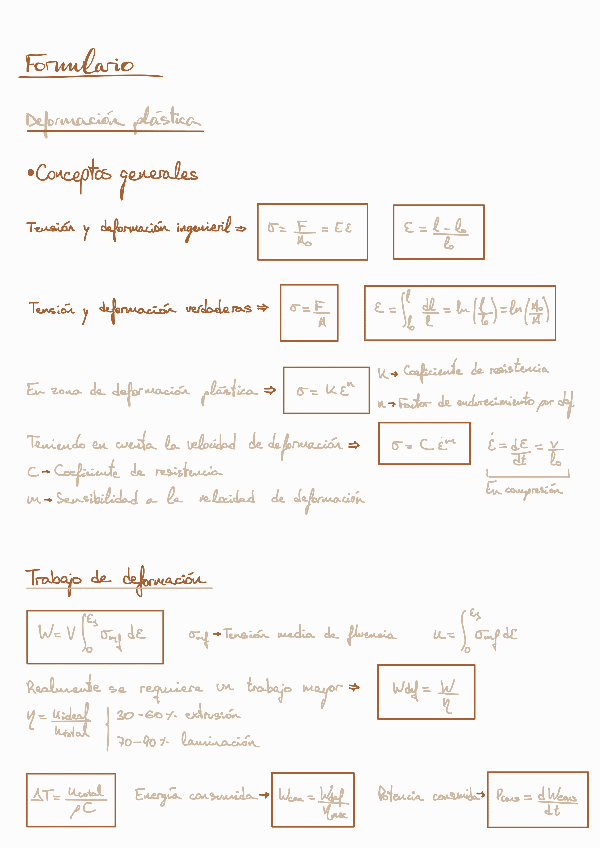 Formulario
Deformación plástica
•Conceptos generales
Tensión y deformación ingenieril ⇒ σ = F/A₀ = Eε    ε = (l - l₀)/l₀
Tensión y deformación verdaderas ⇒ σ = F/A    ε = ∫_{l₀}^{l} dl/l = ln(l/l₀) = ln(A₀/A)
En zona de deformación plástica ⇒ σ = K εⁿ    K → Coeficiente de resistencia
n → Factor de endurecimiento por def.
Teniendo en cuenta la velocidad de deformación ⇒ σ = C ε̇ᵐ    ε̇ = dε/dt = v/l₀
C → Coeficiente de resistencia
En compresión
m → Sensibilidad a la velocidad de deformación
Trabajo de deformación
W = V ∫₀^{εf} σmf dε    σmf → Tensión media de fluencia    u = ∫₀^{εf} σmf dε
Realmente se requiere un trabajo mayor ⇒ Wdef = W/η
η = uideal/utotal    30-60% extrusión
70-90% laminación
ΔT = utotal/ρC    Energía consumida → Wcon = Wdef/ηmec    Potencia consumida → Pcons = dWcons/dt